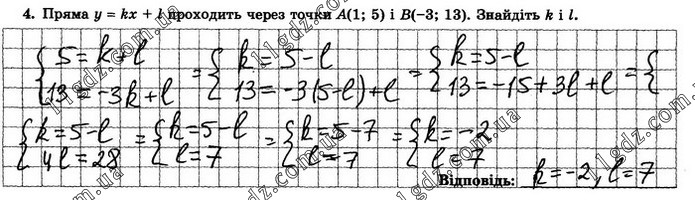 4. Пряма y = kx + l проходить через точки A(1; 5) і B(−3; 13). Знайдіть k і l.
{ 5 = k + l
13 = −3k + l = { k = 5 − l
13 = −3(5 − l) + l = { k = 5 − l
13 = −15 + 3l + l = {
{ k = 5 − l
4l = 28 = { k = 5 − l
l = 7 = { k = 5 − 7
l = 7 = { k = −2
l = 7
Відповідь: k = −2, l = 7
11gdz.com.ua